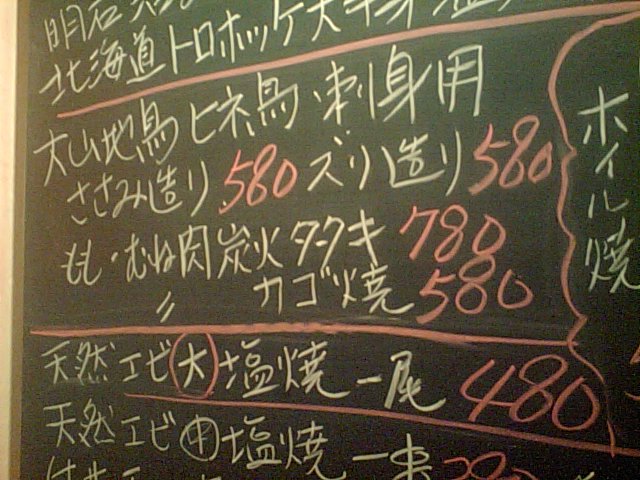 明石
北海道トロホッケ大半身
大山地鳥ヒネ鳥・刺身用
ささみ造り 580 ズリ造り 580
もも・むね肉炭火タタキ 780
〃 カゴ焼 580
天然エビ大塩焼 一尾 480
天然エビ中塩焼 一串
ホイル焼